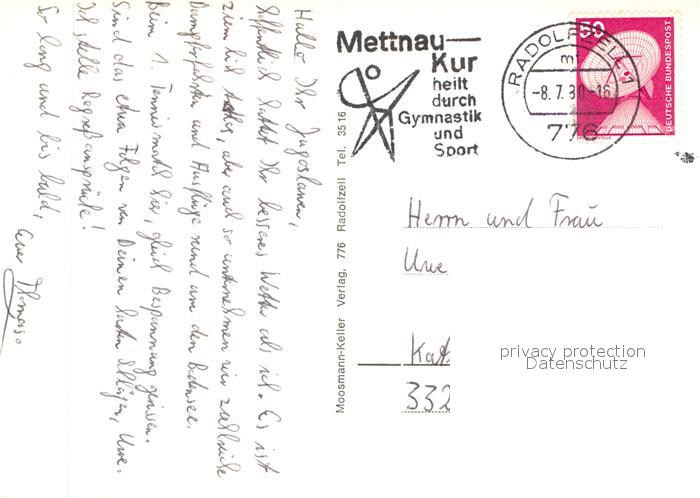 Hallo Ihr Jugoslawen,
hoffentlich hattet Ihr besseres Wetter als ich. Es ist
ziemlich, aber auch so unternehmen wir zahlreiche
Dampferfahrten und Ausflüge rund um den Bodensee.
Beim 1. Tennismatch Bespannung gerissen.
Sind das etwa Folgen von Deinen harten Schlägen, Uwe.
Ich stelle Regreßansprüche!
So long und bis bald,
Euer Thomas
Moosmann-Keller Verlag, 776 Radolfzell Tel. 3516
Mettnau-
Kur
heilt
durch
Gymnastik
und
Sport
RADOLFZELL 1
m
-8.7.80-16
776
50
DEUTSCHE BUNDESPOST
Herrn und Frau
Uwe
Kat
332
privacy protection
Datenschutz